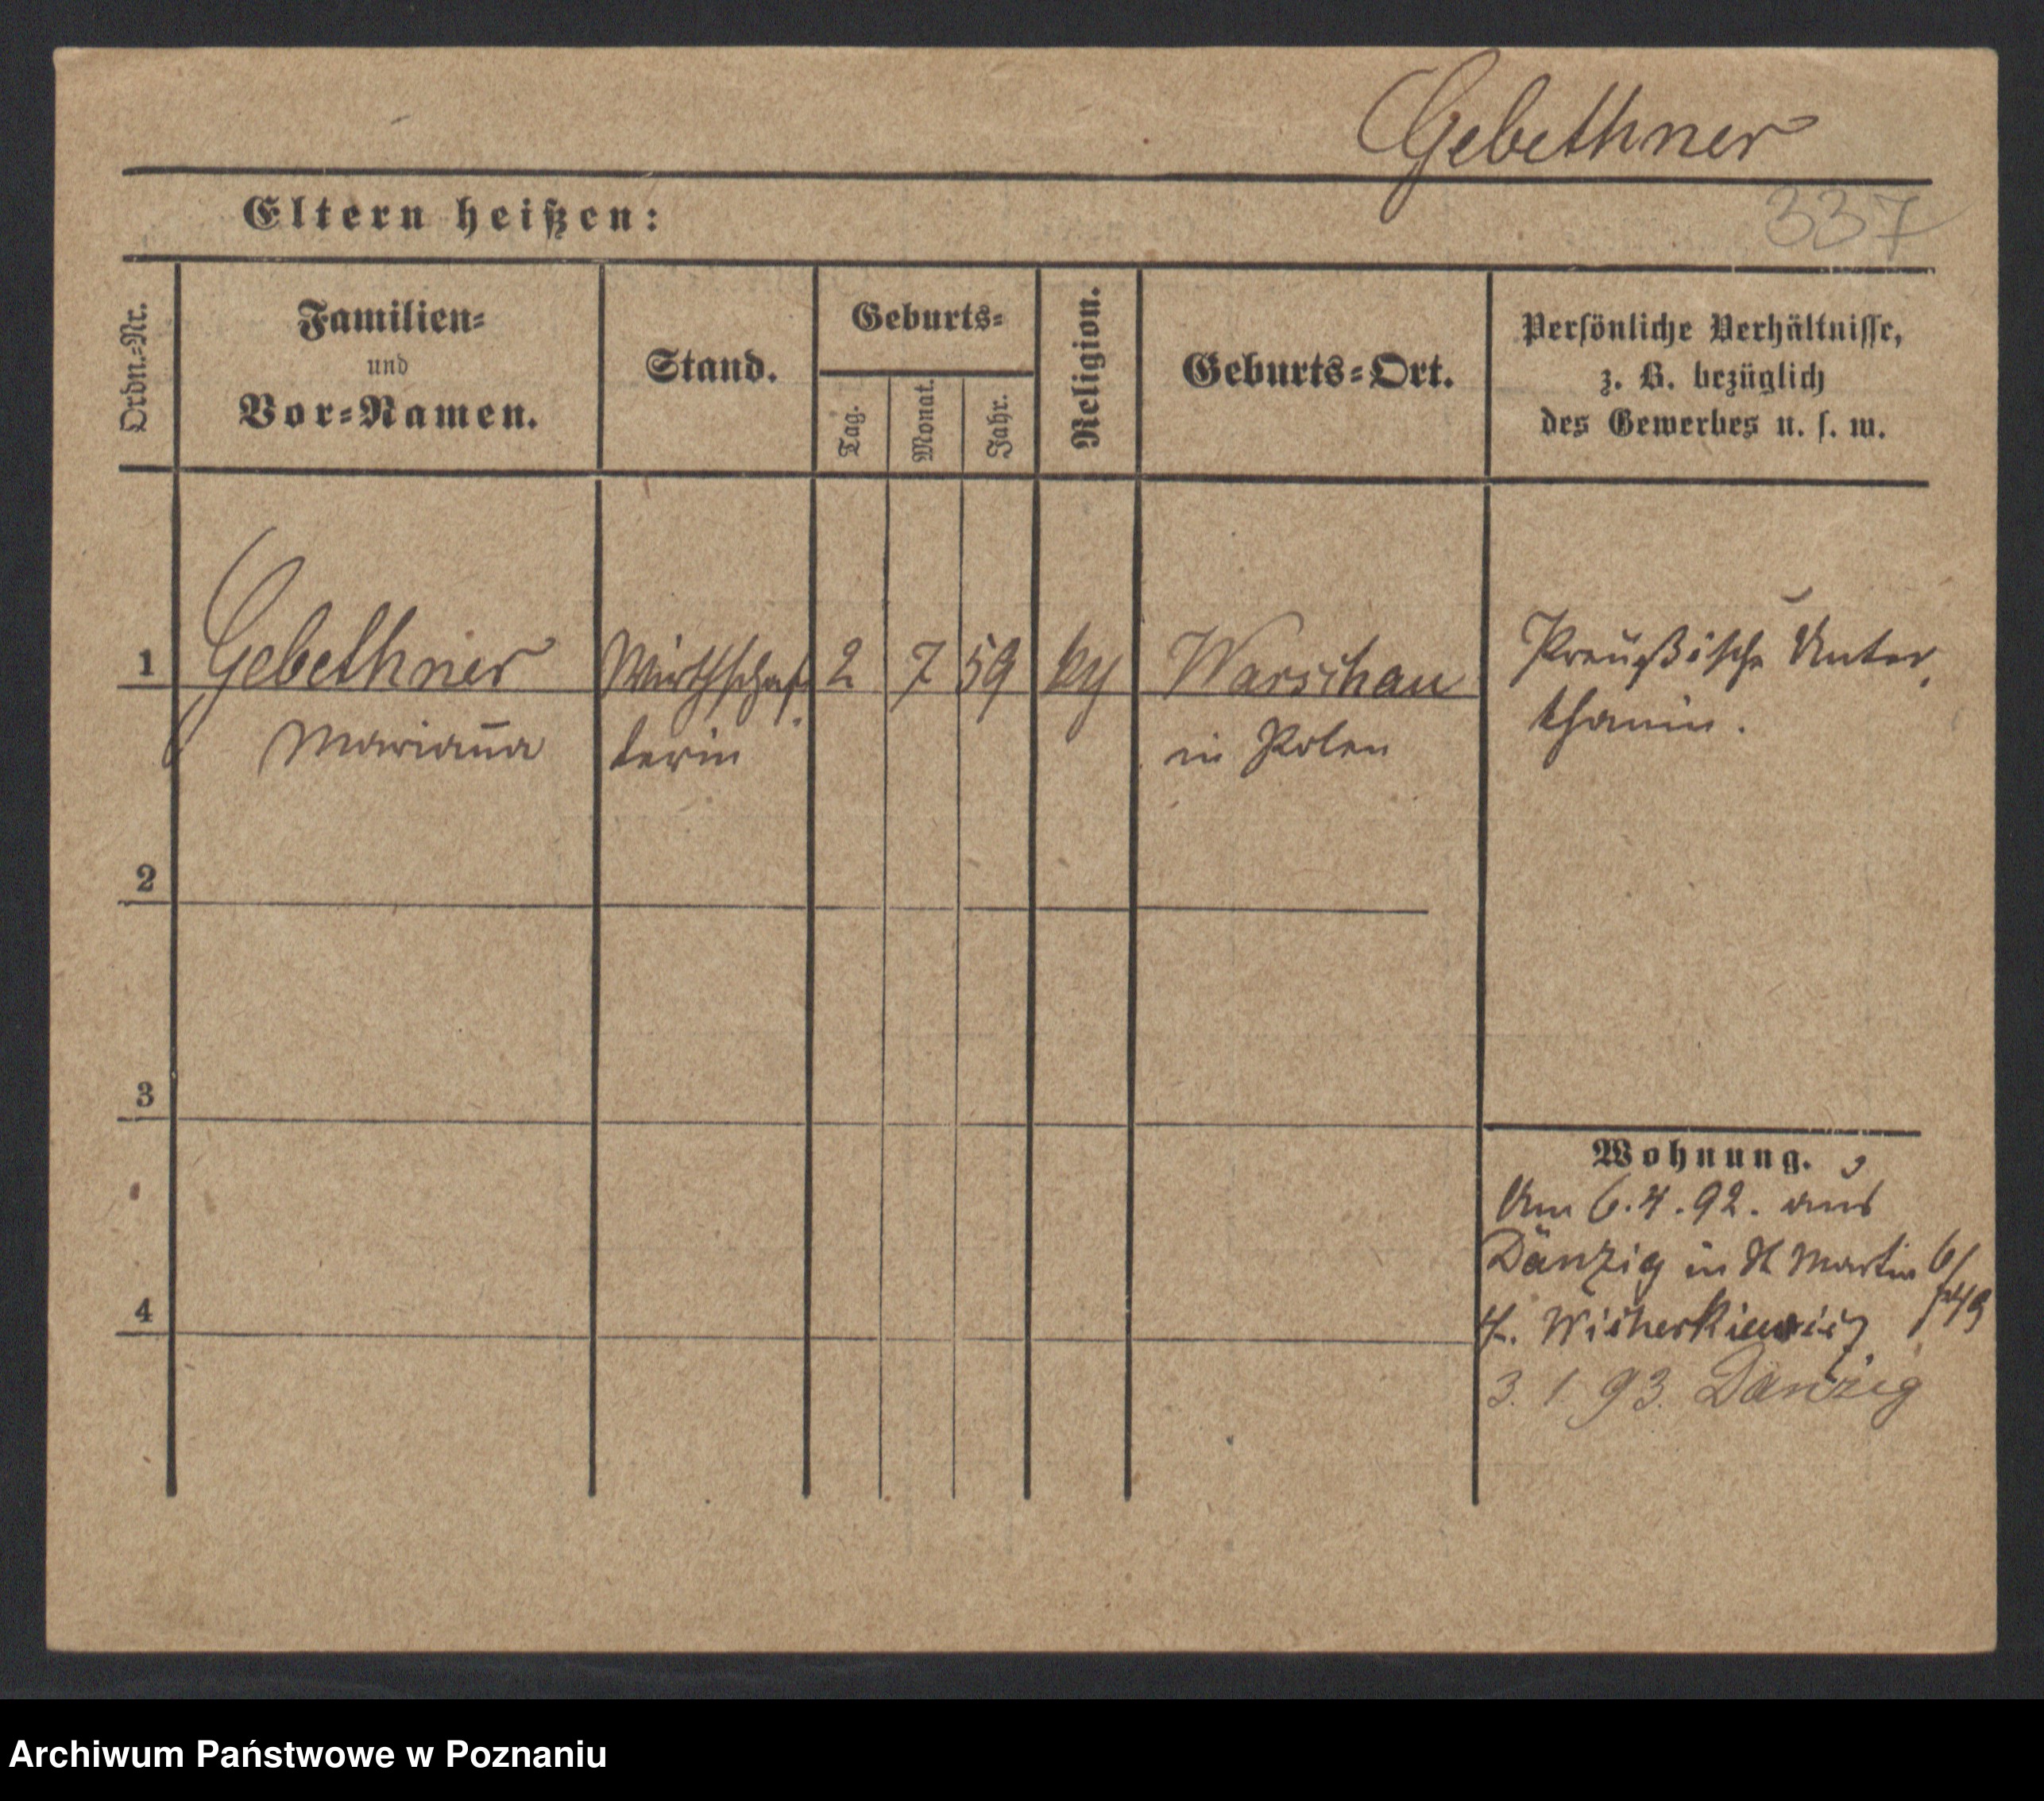 Gebethner
337
Eltern heißen:
Ordn.-Nr.
Familien-
und
Vor-Namen.
Stand.
Geburts-
Tag.
Monat.
Jahr.
Religion.
Geburts-Ort.
Persönliche Verhältnisse,
z. B. bezüglich
des Gewerbes u. s. w.
1 Gebethner Wirthschaf- 2 7 59 Warschau Preußische Unter
Marianna terin in Polen thanin.
2
3
4
Wohnung.
Am 6.4.92. aus
Danzig in St Martin 6/
Wicherkiewicz
3. 1 93. Danzig
Archiwum Państwowe w Poznaniu